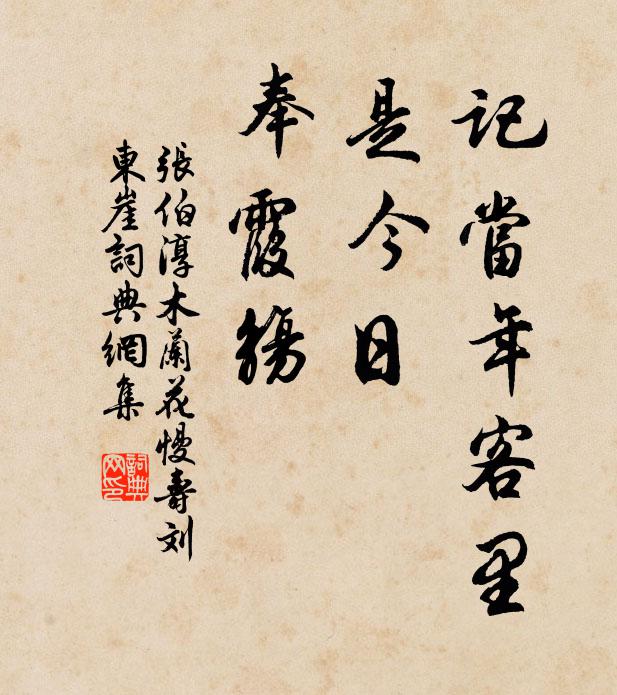 記當年客里
是今日
奉霞觴
張伯淳木蘭花慢壽刘
東崖詞典網集
詞典
网印